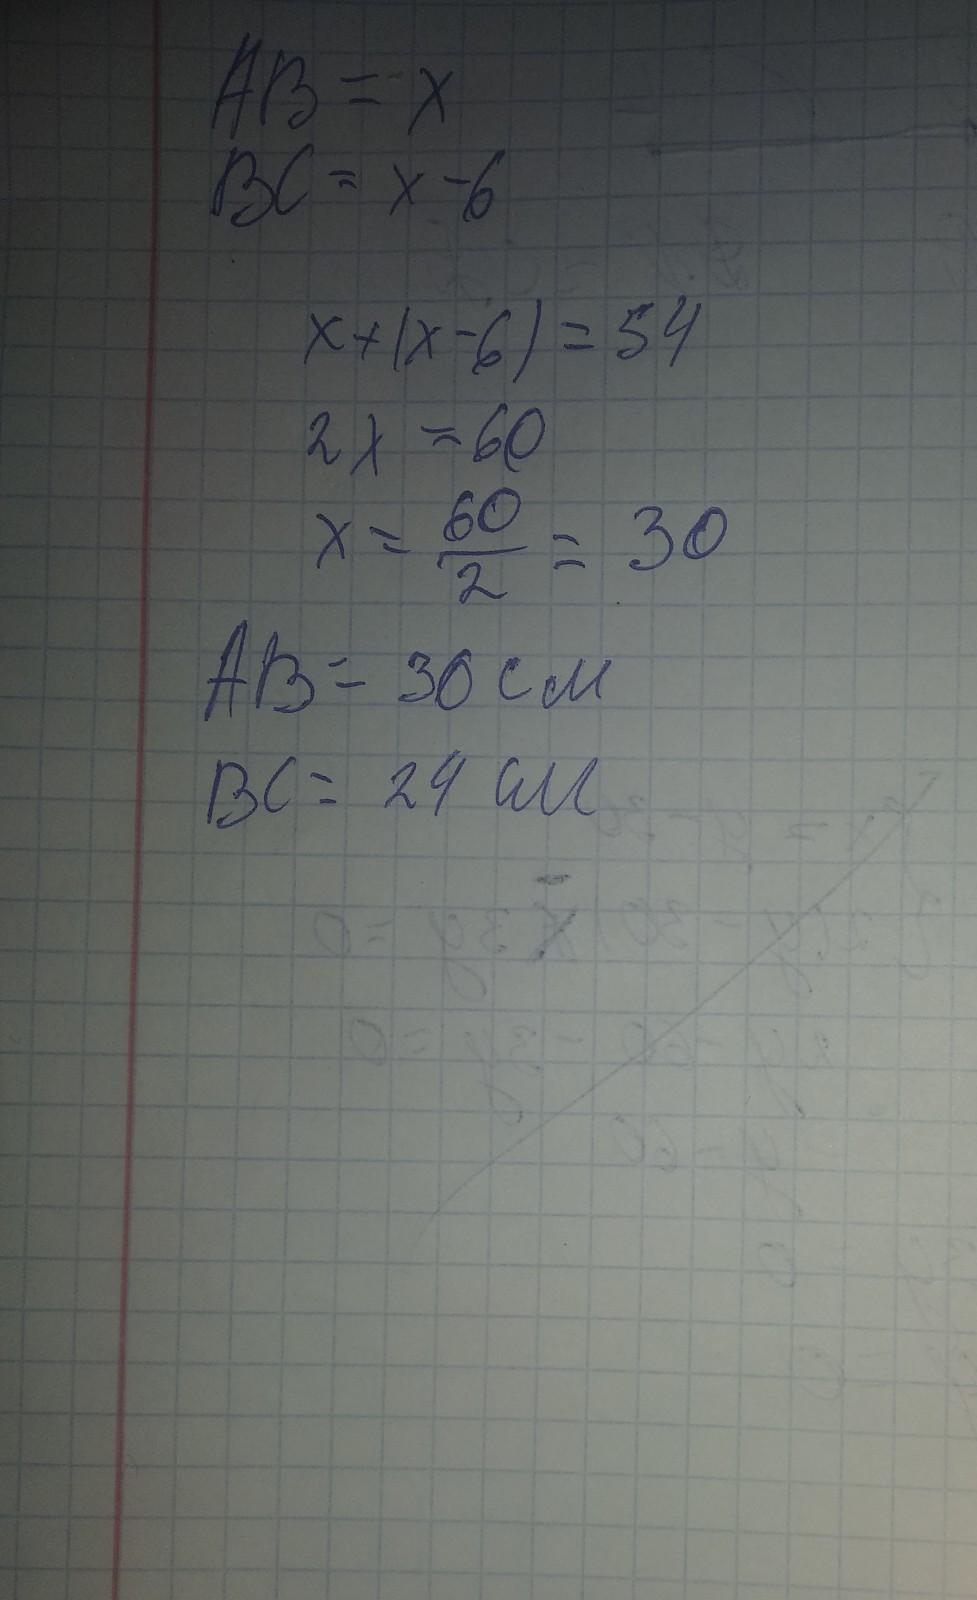 AB = x
BC = x - 6
x + (x - 6) = 54
2x = 60
x = 60/2 = 30
AB = 30 см
BC = 24 см